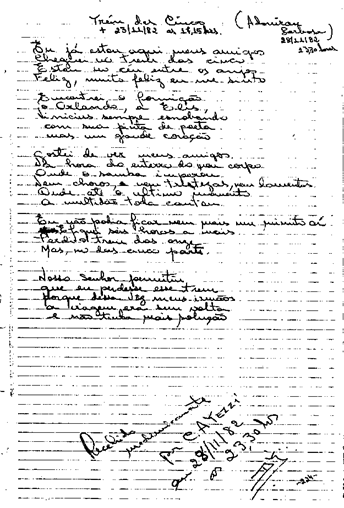 Trem das Cinco (Adoniran Barbosa)
+ 23/11/82 às 17,15 hs. 28/11/82 23,30 hs
Eu já estou aqui meus amigos
Cheguei no trem das cinco
Estou no céu entre os anjos
Feliz, muito feliz eu me sinto
Encontrei o
o Orlando, a Elis
Vinicius sempre
com sua pinta de poeta
mas um grande coração
Gostei de ver meus amigos
Na hora do enterro do meu corpo
Onde o samba imperou
Sem choros, e nem tristezas, nem lamentos
Onde até o ultimo momento
a multidão toda cantou
Eu não podia ficar nem mais um minuto aí
fiquei seis horas a mais
Perdi o trem das onze
Mas, no das cinco parti.
Nosso Senhor permitiu
que eu perdesse esse trem
porque dessa vez meus irmãos
a viagem era sem volta
e não tinha mais solução
Recebido mediunicamente
por C. A.
em 28/11/82
às 23,30 hs